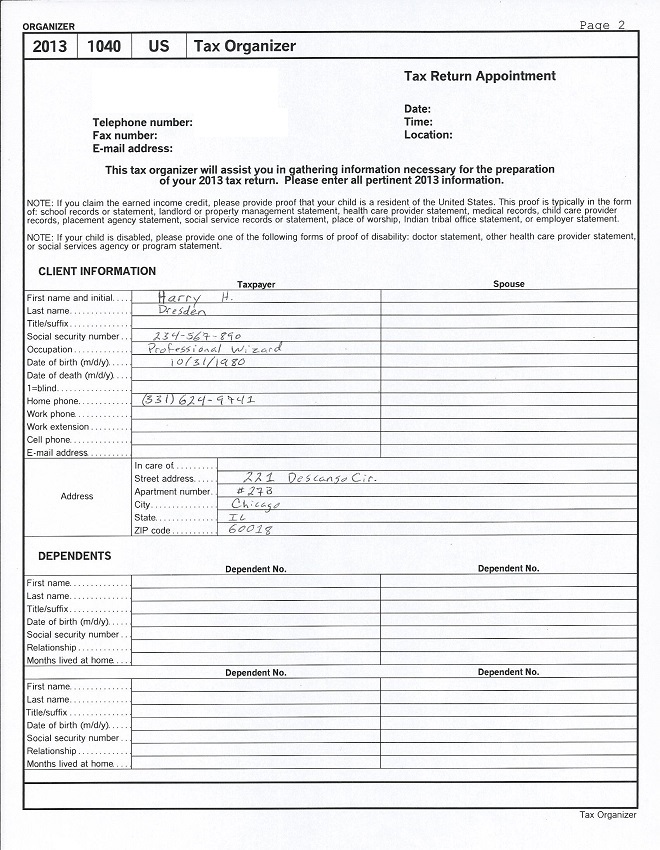 ORGANIZER
Page 2
2013 1040 US Tax Organizer
Tax Return Appointment
Date:
Telephone number: Time:
Fax number: Location:
E-mail address:
This tax organizer will assist you in gathering information necessary for the preparation
of your 2013 tax return. Please enter all pertinent 2013 information.
NOTE: If you claim the earned income credit, please provide proof that your child is a resident of the United States. This proof is typically in the form
of: school records or statement, landlord or property management statement, health care provider statement, medical records, child care provider
records, placement agency statement, social service records or statement, place of worship, Indian tribal office statement, or employer statement.
NOTE: If your child is disabled, please provide one of the following forms of proof of disability: doctor statement, other health care provider statement,
or social services agency or program statement.
CLIENT INFORMATION
Taxpayer Spouse
First name and initial.... Harry H.
Last name.............. Dresden
Title/suffix..............
Social security number... 234-567-890
Occupation............. Professional Wizard
Date of birth (m/d/y)..... 10/31/1980
Date of death (m/d/y)....
1=blind.................
Home phone............ (331) 624-9741
Work phone............
Work extension.........
Cell phone..............
E-mail address.........
Address
In care of.........
Street address..... 221 Descanso Cir.
Apartment number.. #27B
City............... Chicago
State.............. IL
ZIP code.......... 60018
DEPENDENTS
Dependent No. Dependent No.
First name.............
Last name.............
Title/suffix..............
Date of birth (m/d/y).....
Social security number...
Relationship...........
Months lived at home....
Dependent No. Dependent No.
First name.............
Last name.............
Title/suffix..............
Date of birth (m/d/y).....
Social security number...
Relationship...........
Months lived at home....
Tax Organizer